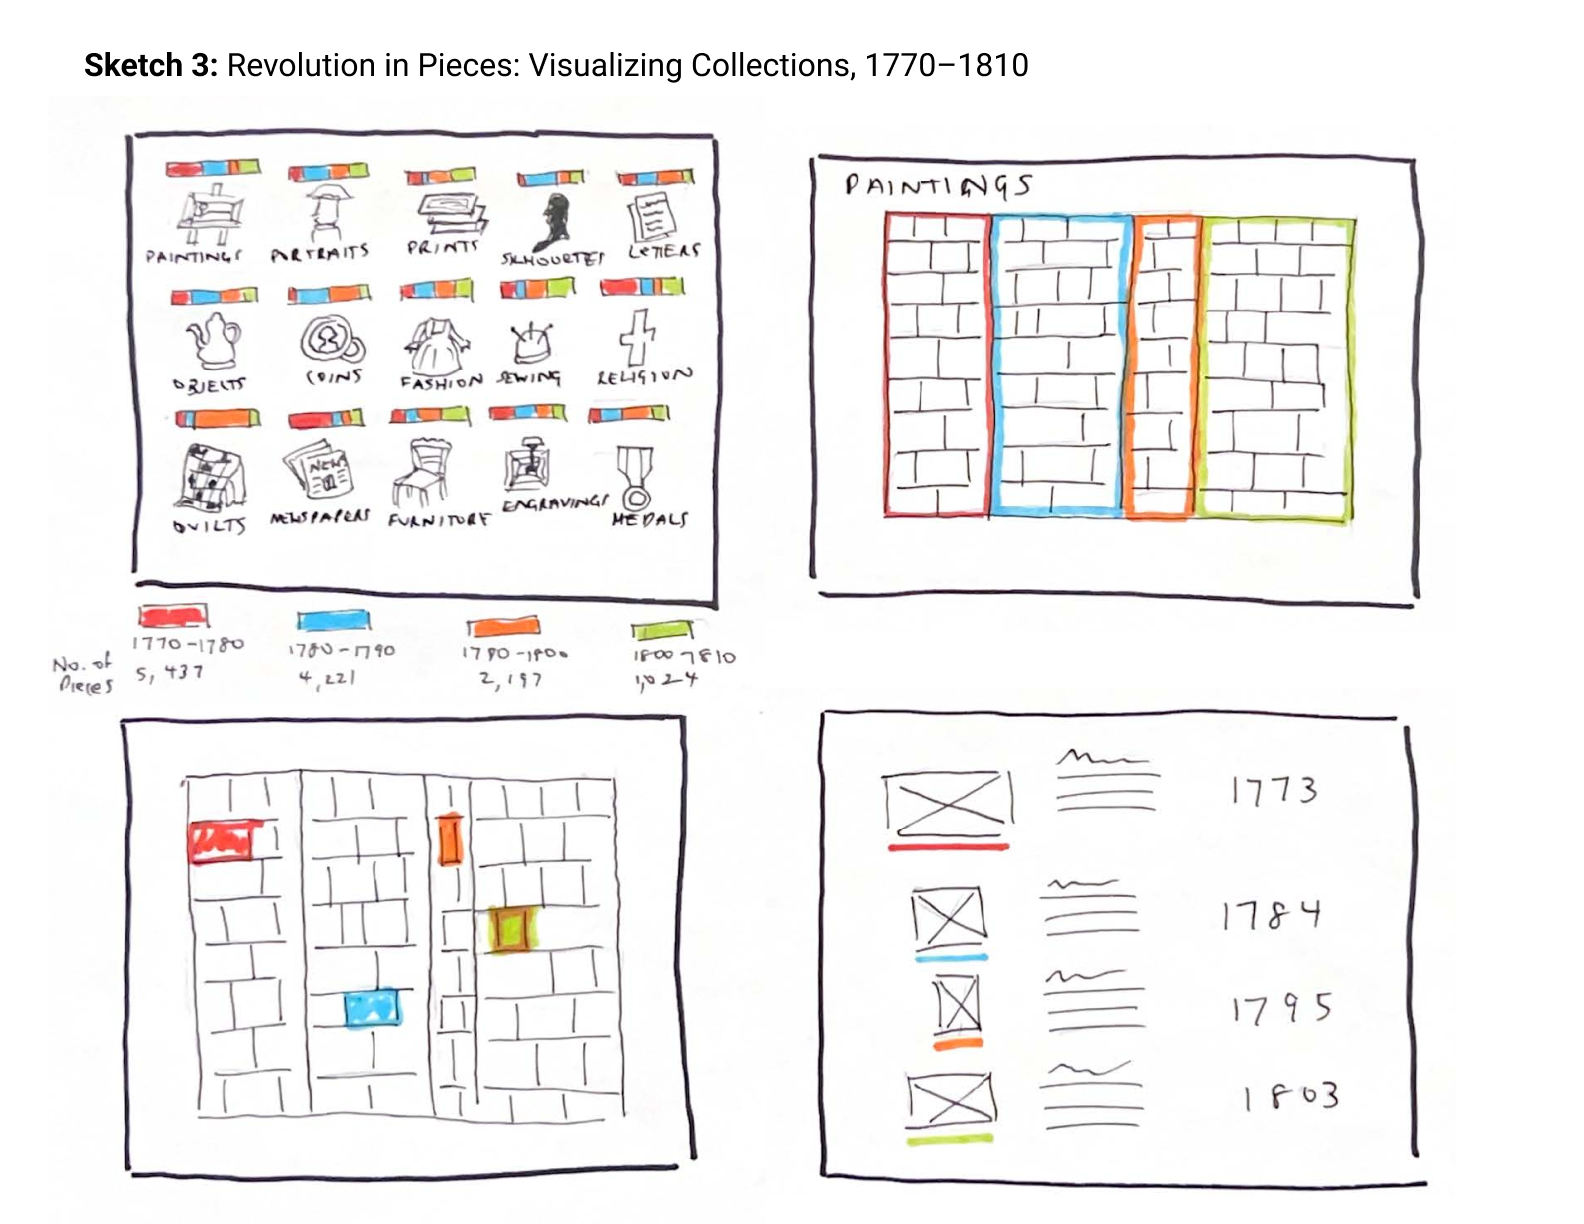 Sketch 3: Revolution in Pieces: Visualizing Collections, 1770–1810
PAINTINGS PORTRAITS PRINTS SILHOUETTES LETTERS
OBJECTS COINS FASHION SEWING RELIGION
NEWS
QUILTS NEWSPAPERS FURNITURE ENGRAVINGS MEDALS
1770-1780 1780-1790 1790-1800 1800-1810
No. of Pieces 5,437 4,221 2,197 1,024
PAINTINGS
1773
1784
1795
1803